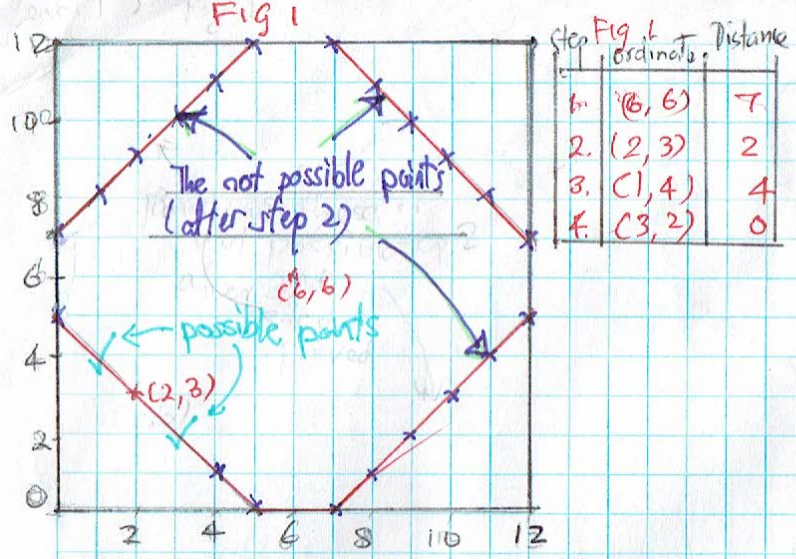 Fig 1
12
10
8
6
4
2
0
2 4 6 8 10 12
The not possible points
(after step 2)
(6,6)
possible points
(2,3)
Step Fig 1
ordinate. Distance
1. (6, 6) 7
2. (2, 3) 2
3. (1, 4) 4
4. (3, 2) 0